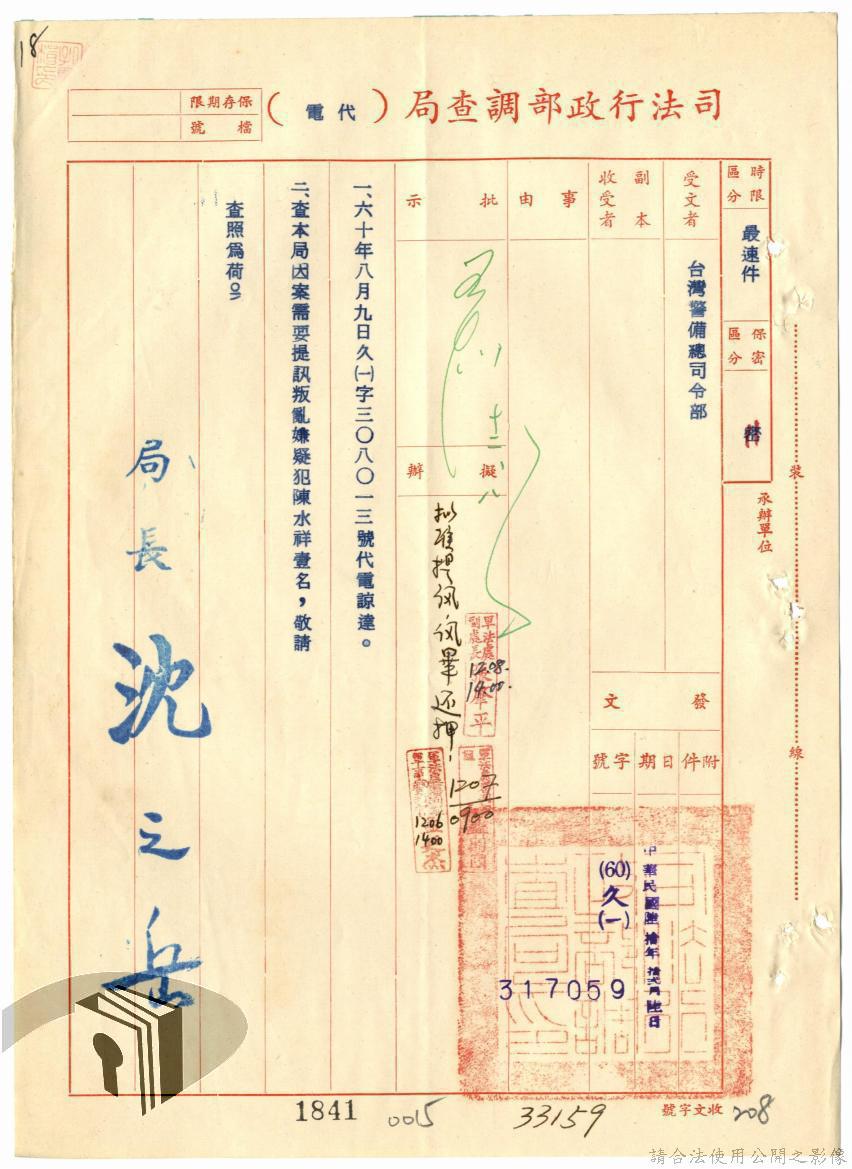 18
司法行政部調查局（代電）
保存期限
檔號
時限區分
最速件
保密區分
密
受文者
台灣警備總司令部
副本收受者
事由
批示
十二、八
擬辦
拟准提訊訊畢还押、
承辦單位
裝
線
發文
附件
日期
字號
中華民國陸拾年拾貳月陸日
(60)久(一)
317059
一、六十年八月九日久(一)字三〇八〇一三號代電諒達。
二、查本局因案需要提訊叛亂嫌疑犯陳水祥壹名，敬請
查照為荷。
局長 沈之岳
軍法處副處長
1208.
1400.
1207
0900
1206
1400
1841
0015
33159
收文字號
208
請合法使用公開之影像